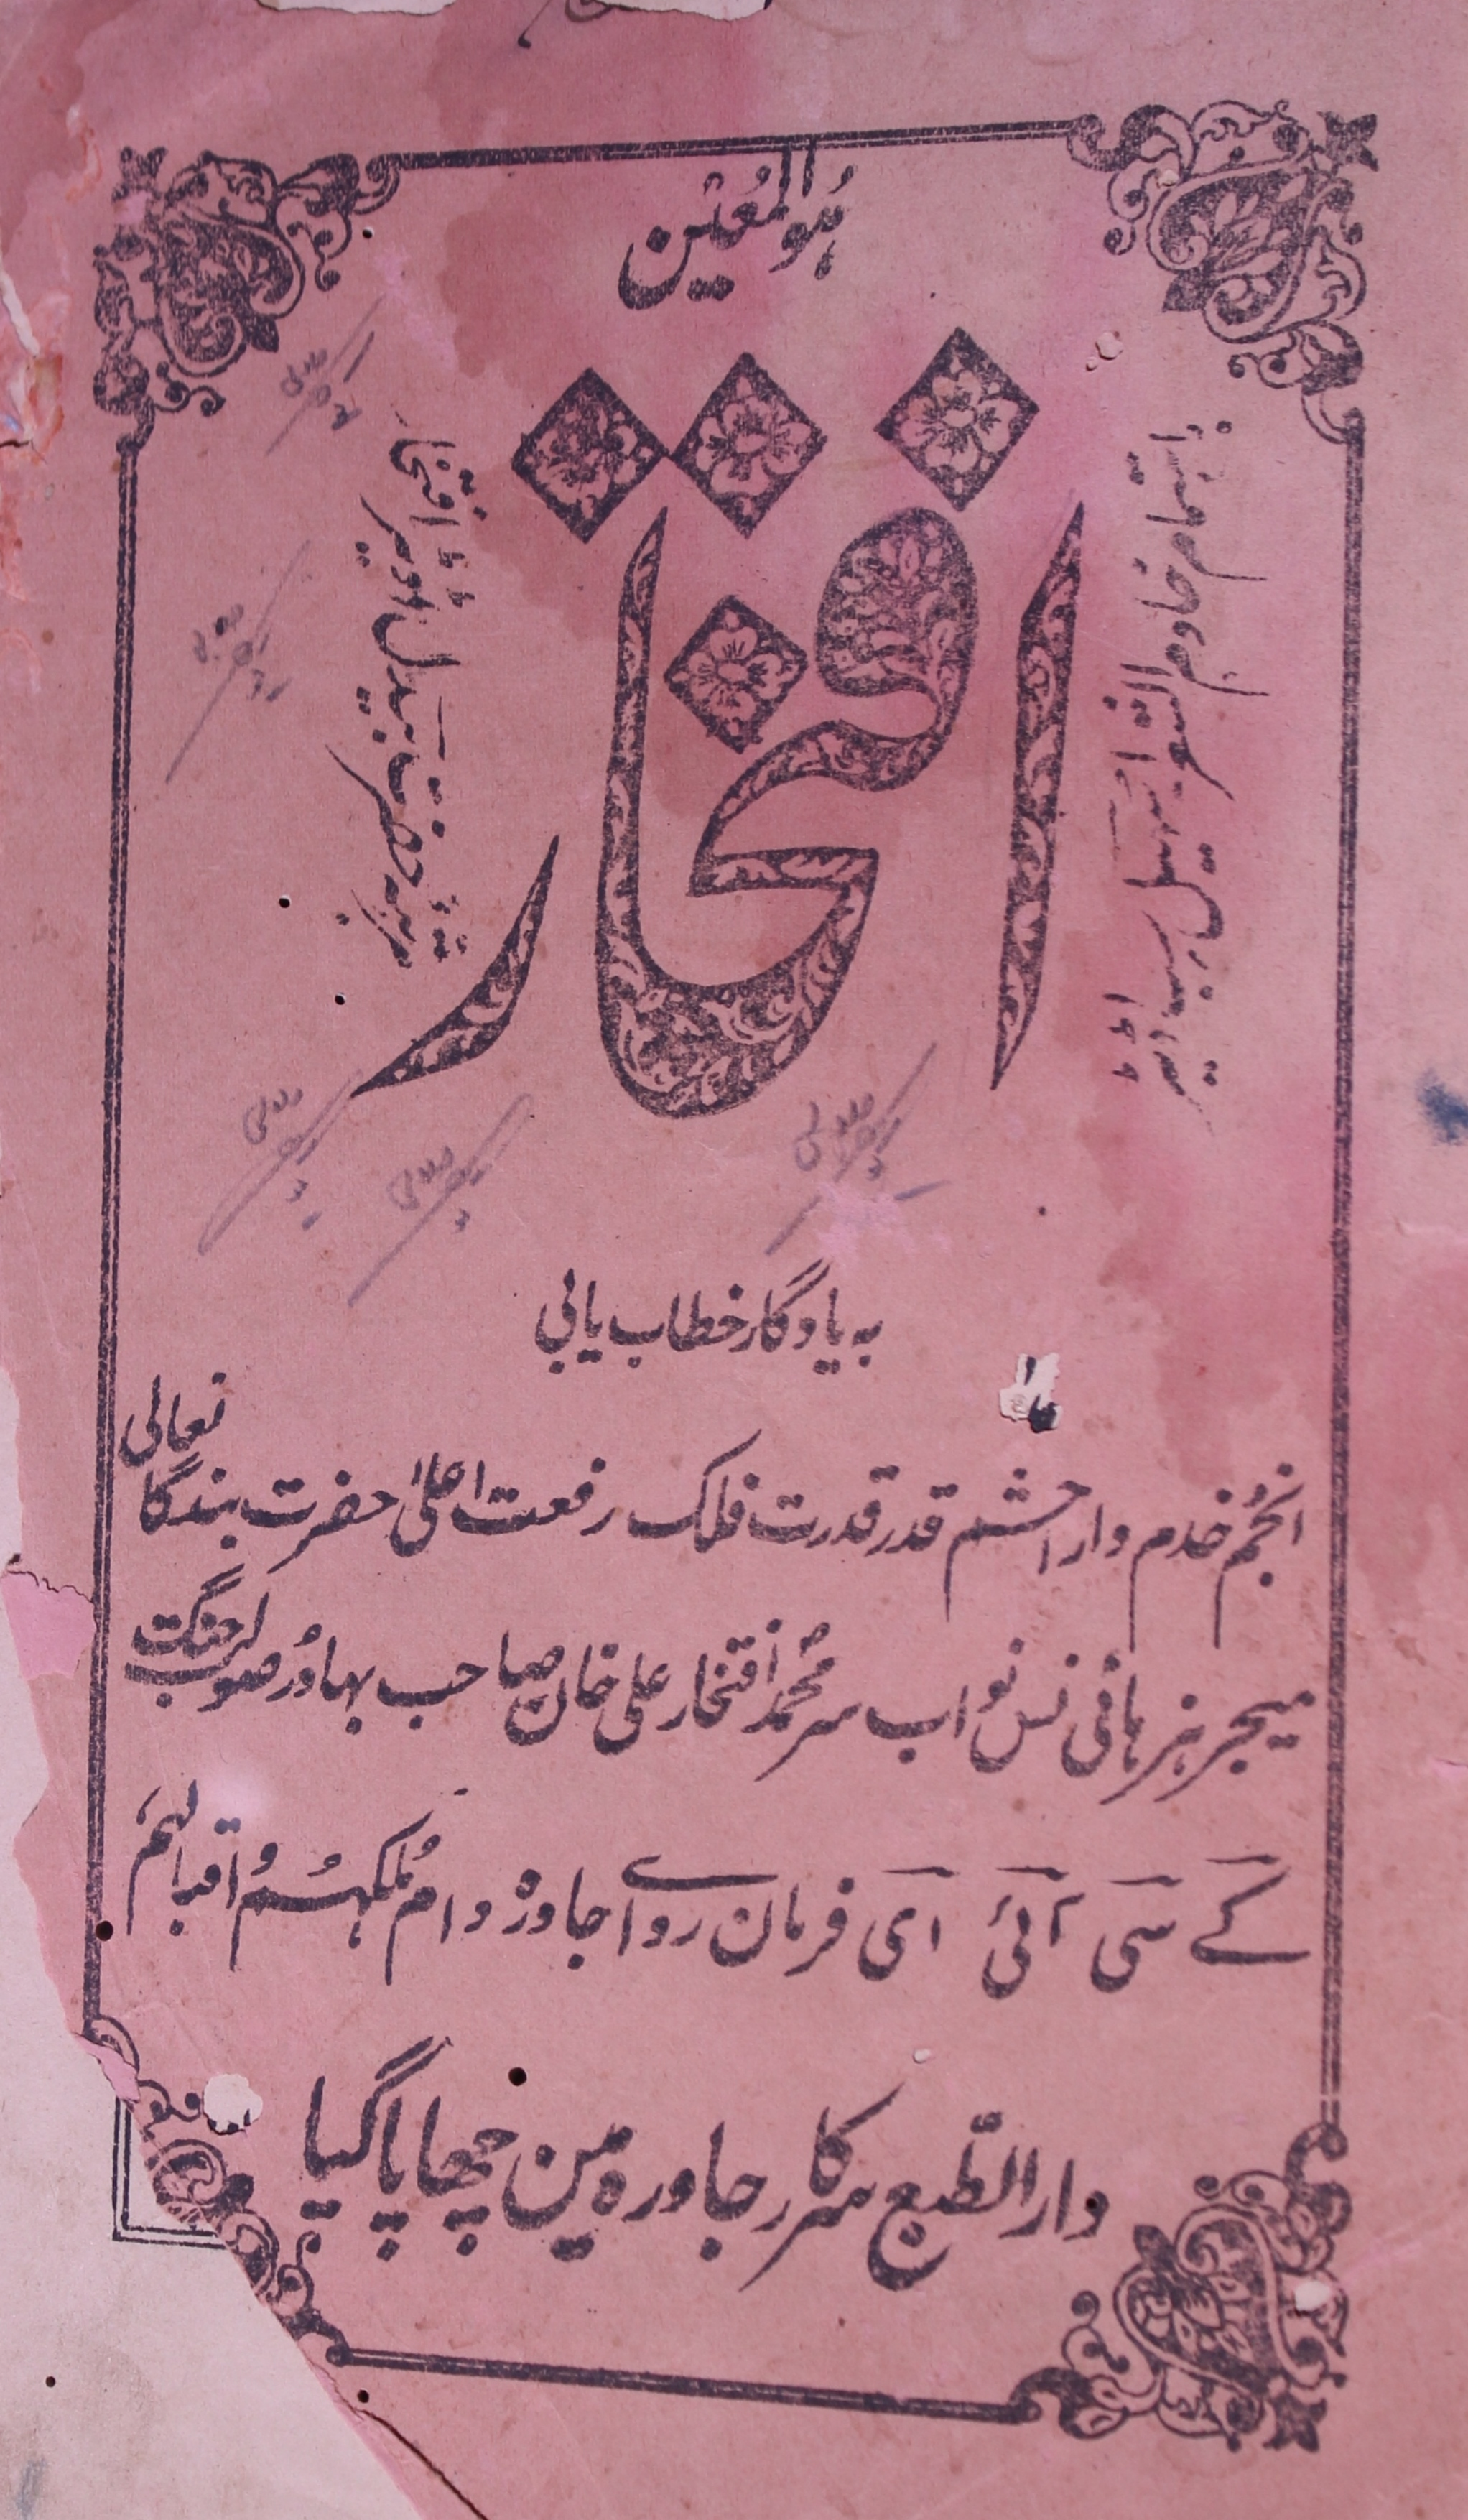 ہوالمعین
افتخار
باہتمام خادم الشعرا
مرتبہ حضرت بیدل اڈیٹر افتخار
بہ یادگار خطاب یابی
انجم خدم دارا حشم قدر قدرت فلک رفعت اعلیٰ حضرت بندگا تعالی
میجر ہز ہائی نس نواب سر محمد افتخار علی خان صاحب بہادر صولت جنگ
کے سی آئی ای فرمان رواے جاورہ دام ملکہم و اقبالہم
دار الطبع سرکار جاورہ مین چھاپا گیا